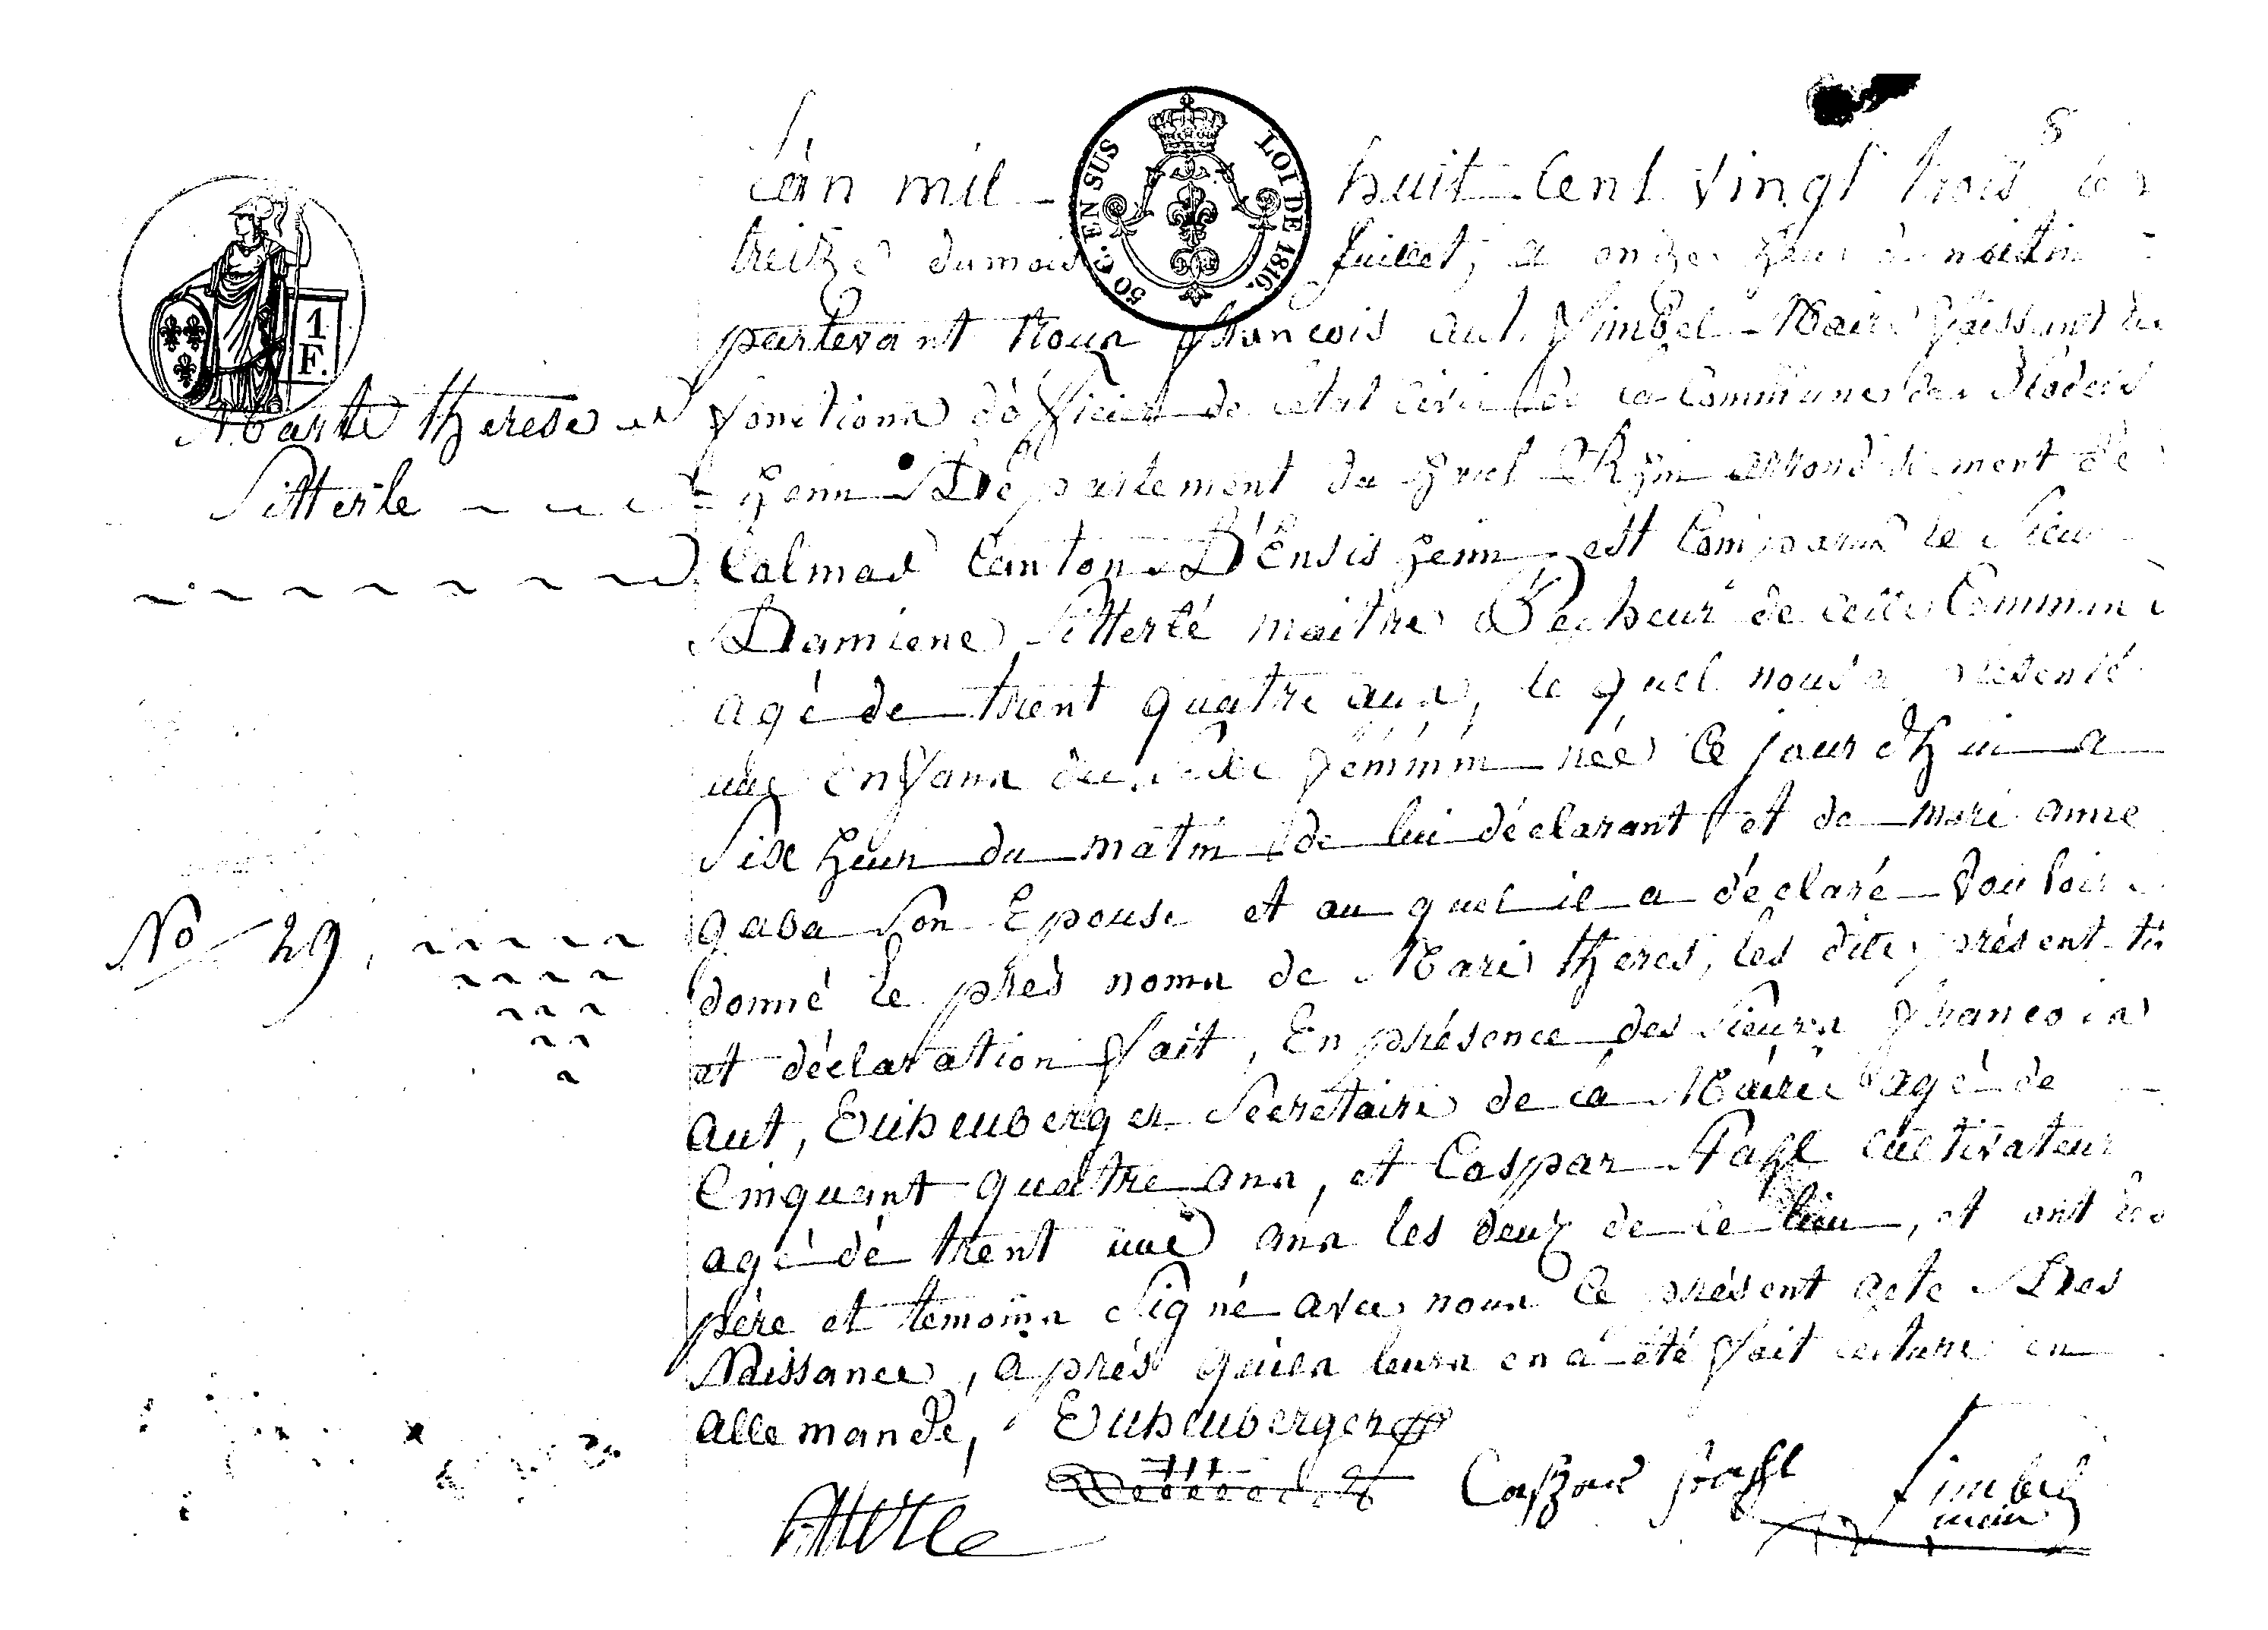 8
L'an mil huit Cent vingt trois le
treitze du mois Juillet, a onze heur du matin
50 C. EN SUS LOI DE 1816.
1 F.
pardevant nous francois ant. Simbel Maire faissant les
Marie therese
fonctions d'officier de l'etat civil de la Commune de Blodels
Sitterlé
heim Département du haut Rhin arrondissement de
Colmar Canton D'Ensisheim, est Comparu le Sieur
Damiene Sitterlé maitre Pecheur de cette Commune
agé de trent quatre ans, le quel nous a présenté
une Enfans du Sexe féminin née Ce jourdhui a
Six heur du matin de lui déclarant et de mari anne
No 29,
gaba Son Epouse et au quel il a déclaré vouloir
donné le prés noms de Marie theres, les dites présent
et déclaration fait, En présence des Sieurs francois
ant, Eichenberger Secretaire de la Mairie agé de
Cinquant quatre ans, et Caspar Pahl Cultivateur
agé dé trent une ans les deux de ce lieu, et ont les
père et temoins Signé avec nous le présent acte Des
Naissance, aprés quien leurs en a été fait lecture en
allemande, Eichenberger
Sitterle Caspar Simbel
maire